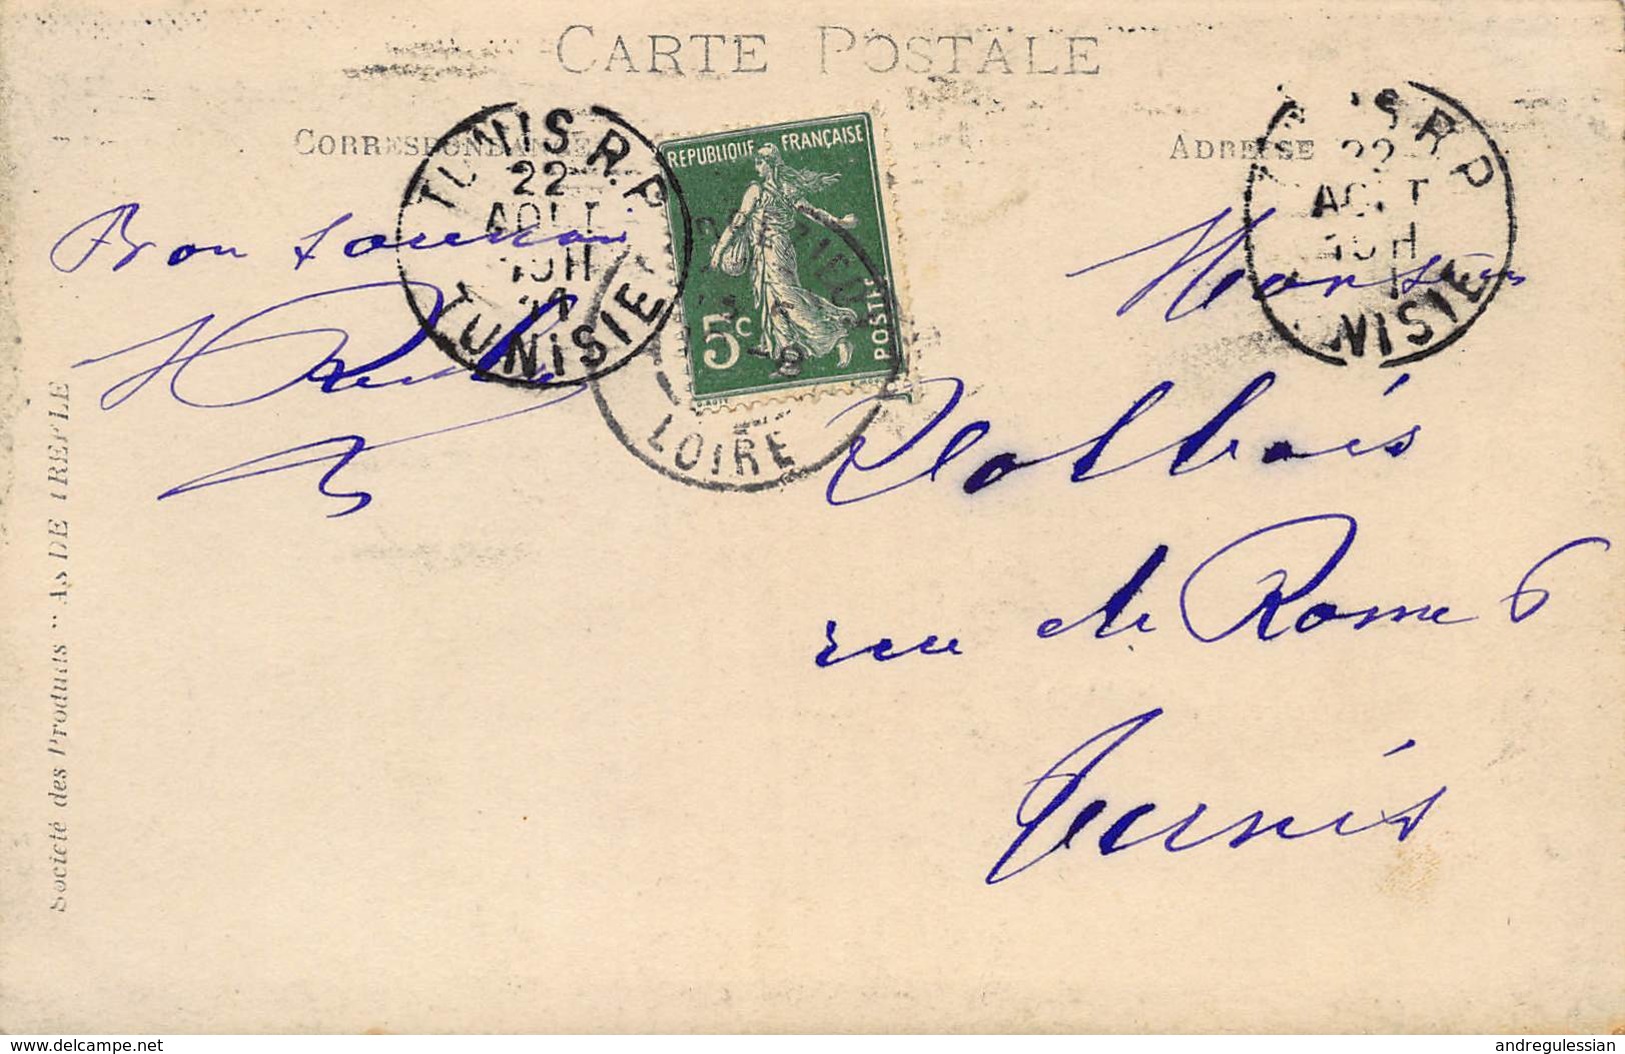 CARTE POSTALE
CORRESPONDANCE
ADRESSE
TUNIS R.P
22
AOUT
TUNISIE
REPUBLIQUE FRANÇAISE
5c
POSTES
LOIRE
R P
22
AOUT
NISIE
Bon souvenir
Monsieur
rue de Rome 6
Tunis
Société des Produits "AS DE TREFLE
www.delcampe.net
andregulessian